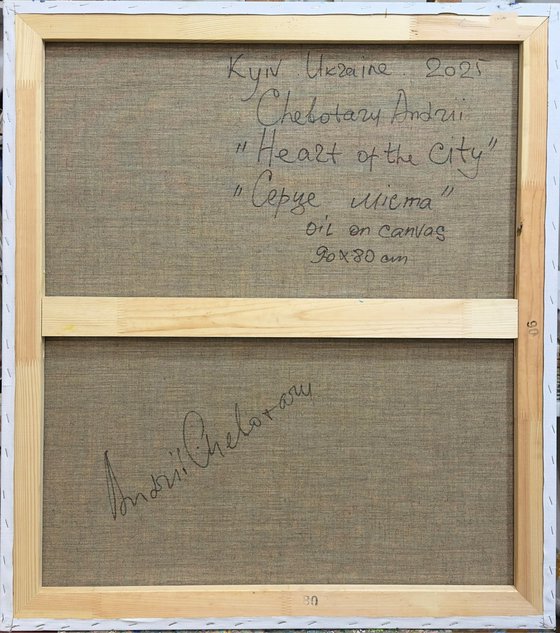 Kyiv. Ukraine. 2025
Chebotaru Andrii
"Heart of the City"
"Серце міста"
oil on canvas
90x80 cm
90
Andrii Chebotaru
80